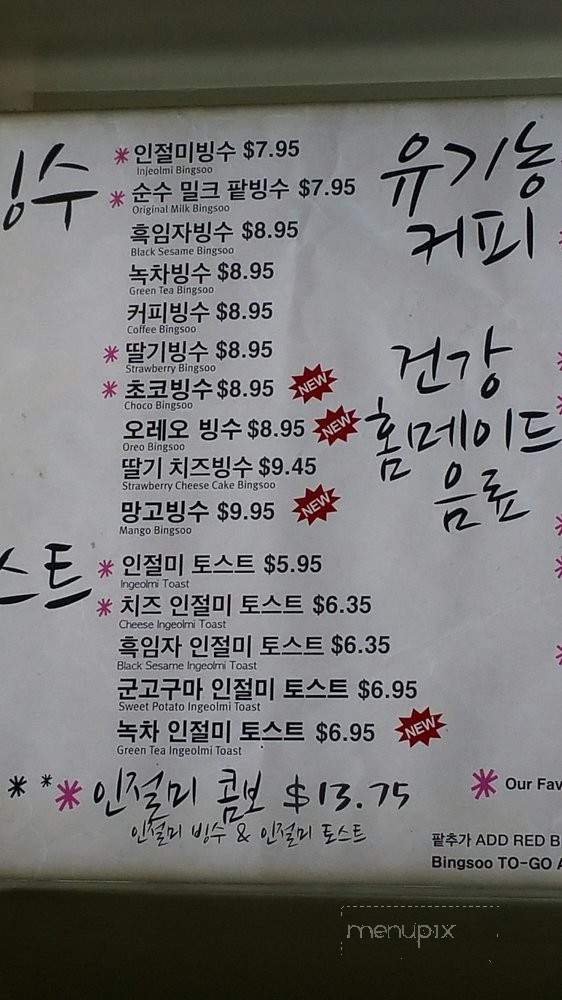 빙수
인절미빙수 $7.95
Injeolmi Bingsoo
순수 밀크 팥빙수 $7.95
Original Milk Bingsoo
흑임자빙수 $8.95
Black Sesame Bingsoo
녹차빙수 $8.95
Green Tea Bingsoo
커피빙수 $8.95
Coffee Bingsoo
딸기빙수 $8.95
Strawberry Bingsoo
초코빙수 $8.95 NEW
Choco Bingsoo
오레오 빙수 $8.95 NEW
Oreo Bingsoo
딸기 치즈빙수 $9.45
Strawberry Cheese Cake Bingsoo
망고빙수 $9.95 NEW
Mango Bingsoo
스트
인절미 토스트 $5.95
Ingeolmi Toast
치즈 인절미 토스트 $6.35
Cheese Ingeolmi Toast
흑임자 인절미 토스트 $6.35
Black Sesame Ingeolmi Toast
군고구마 인절미 토스트 $6.95
Sweet Potato Ingeolmi Toast
녹차 인절미 토스트 $6.95 NEW
Green Tea Ingeolmi Toast
인절미 콤보 $13.75
인절미 빙수 & 인절미 토스트
유기농
커피
건강
홈메이드
음료
Our Fav
팥추가 ADD RED B
Bingsoo TO-GO A
menupix